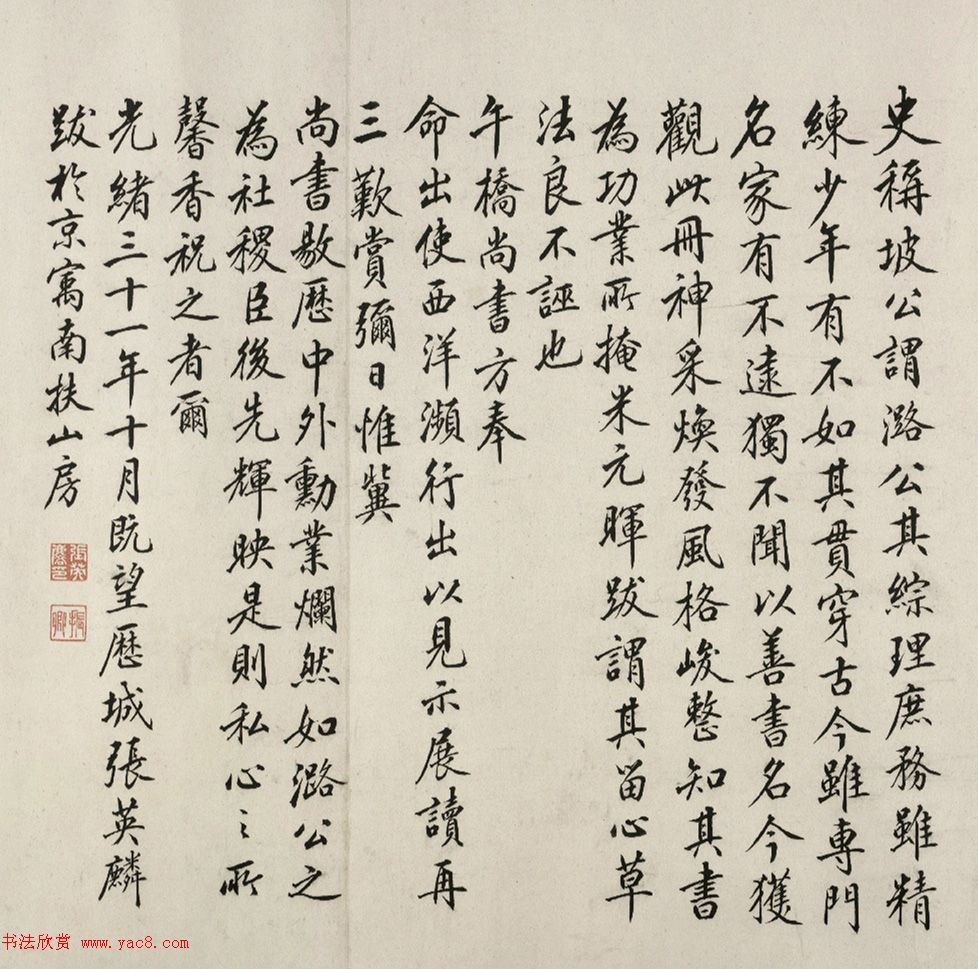 史稱坡公謂潞公其綜理庶務雖精
練少年有不如其貫穿古今雖專門
名家有不逮獨不聞以善書名今獲
觀此冊神采煥發風格峻整知其書
為功業所掩米元暉跋謂其留心草
法良不誣也
午橋尚書方奉
命出使西洋瀕行出以見示展讀再
三歎賞彌日惟冀
尚書敭歷中外勳業爛然如潞公之
為社稷臣後先輝映是則私心之所
馨香祝之者爾
光緒三十一年十月既望歷城張英麟
跋於京寓南扶山房
張英麐印
振卿
书法欣赏 www.yac8.com